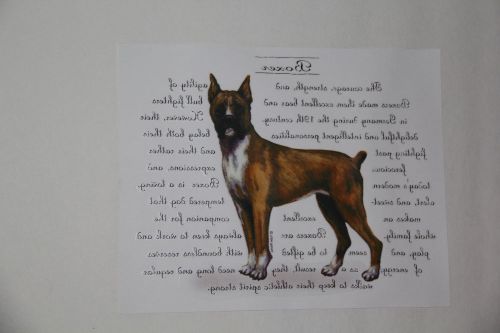 Boxer
The courage, strength, and agility of
Boxers made them excellent bear and bull fighters
in Germany during the 19th century. However, their
delightful and intelligent personalities belay both their
fighting past and their rather
ferocious expressions, an
today's modern Boxer is a loving,
alert, and sweet tempered dog that
makes an excellent companion for the
whole family. Boxers ar always keen to work and
play, and seem to be gifted with boundless reserves
of energy; as a result, they need long and regular
walks to keep their athletic spirit strong.